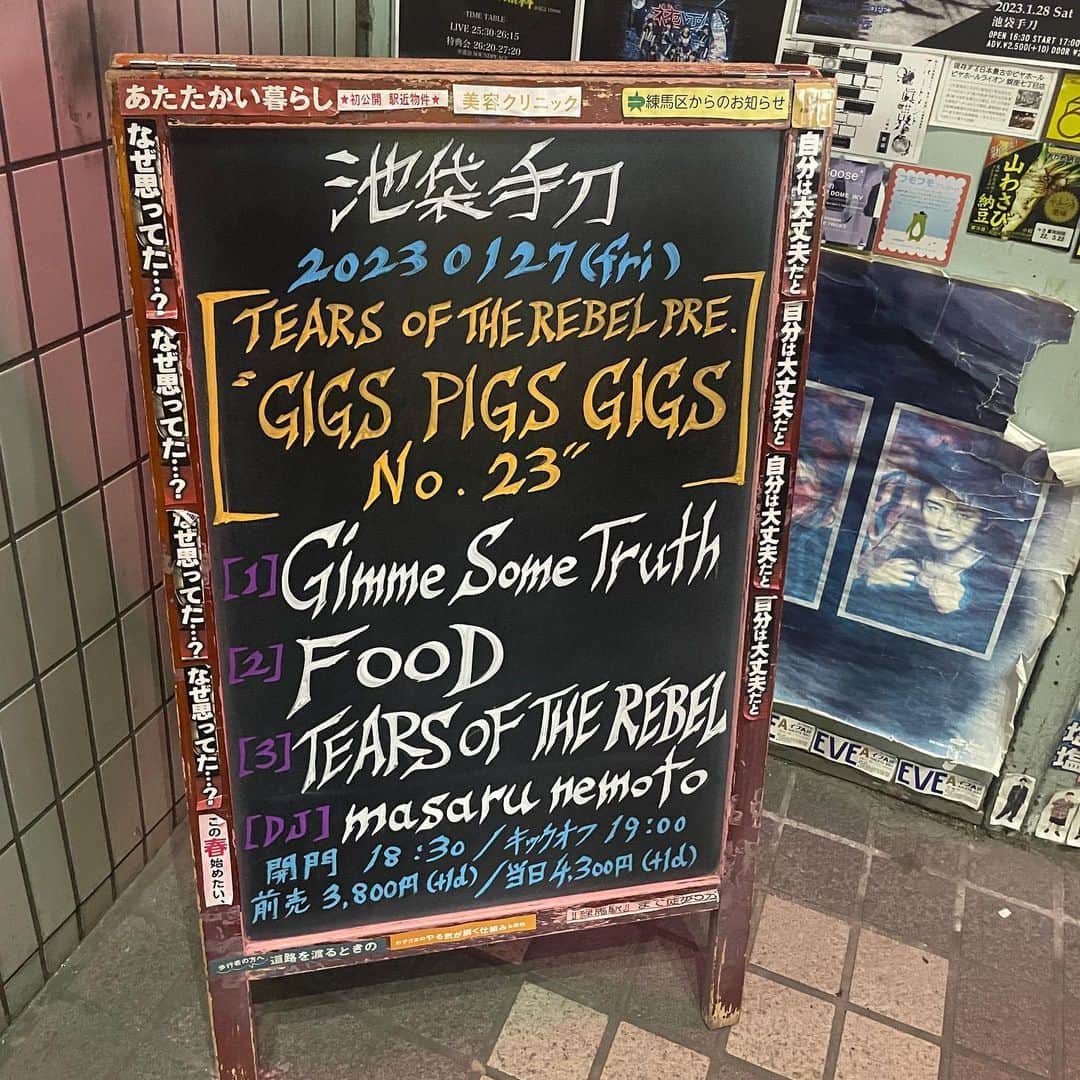 TIME TABLE
LIVE 25:30-26:15
特典会 26:20-27:20
2023.1.28 Sat
池袋手刀
OPEN 16:30 START 17:00
ADV.¥2,500(+1D) DOOR
現存する日本最古のビヤホール
ビヤホールライオン 銀座七丁目店
山わさび
納豆
あたたかい暮らし
★初公開 駅近物件★
美容クリニック
練馬区からのお知らせ
なぜ思ってた…?
なぜ思ってた…?
なぜ思ってた…?
なぜ思ってた…?
この春始めたい、
自分は大丈夫だと
自分は大丈夫だと
自分は大丈夫だと
自分は大丈夫だと
池袋手刀
2023 0127(fri)
TEARS OF THE REBEL PRE.
"GIGS PIGS GIGS
No. 23"
[1] Gimme Some Truth
[2] FOOD
[3] TEARS OF THE REBEL
[DJ] masaru nemoto
開門 18:30/キックオフ 19:00
前売 3,800円(+1d)/当日4,300円(+1d)
歩行者の方へ 道路を渡るときの
やる気が続く仕組み
EVE
EVE
EVE